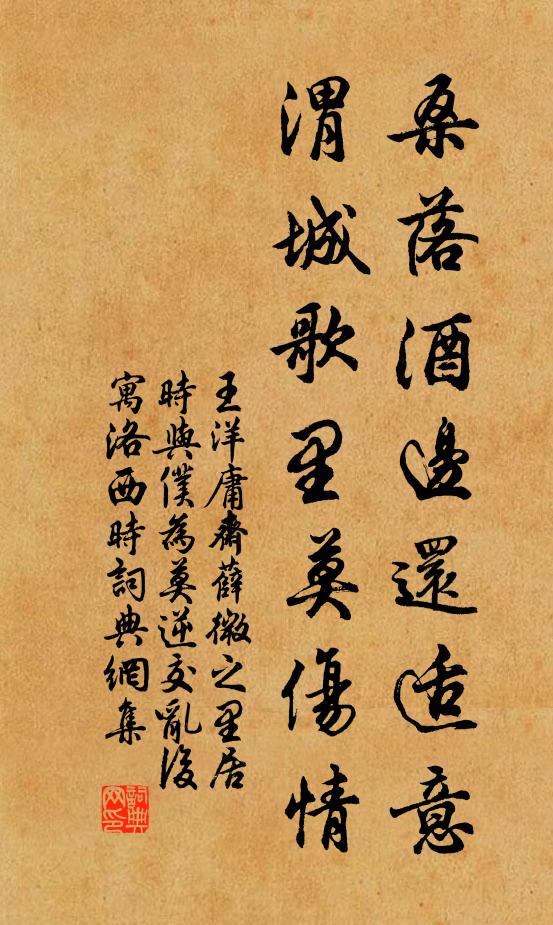 桑落酒邊還适意
渭城歌里莫傷情
王洋庸齋薛徽之里居
時與僕為莫逆交亂後
寓洛西時詞典網集
詞典網印